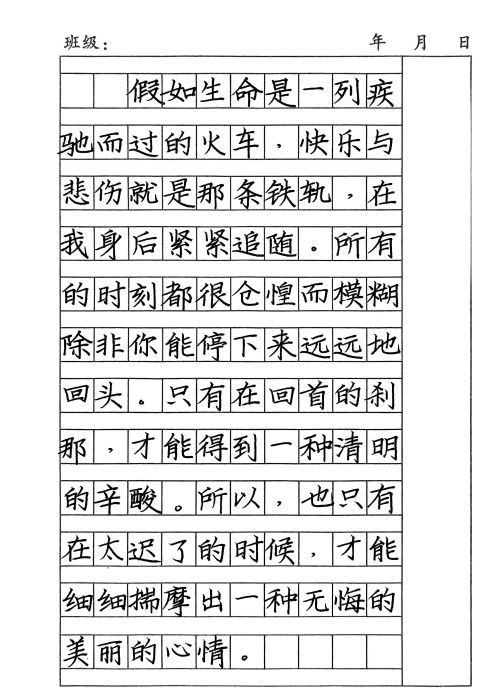 班级： 年 月 日
假如生命是一列疾
驰而过的火车，快乐与
悲伤就是那条铁轨，在
我身后紧紧追随。所有
的时刻都很仓惶而模糊
除非你能停下来远远地
回头。只有在回首的刹
那，才能得到一种清明
的辛酸。所以，也只有
在太迟了的时候，才能
细细揣摩出一种无悔的
美丽的心情。